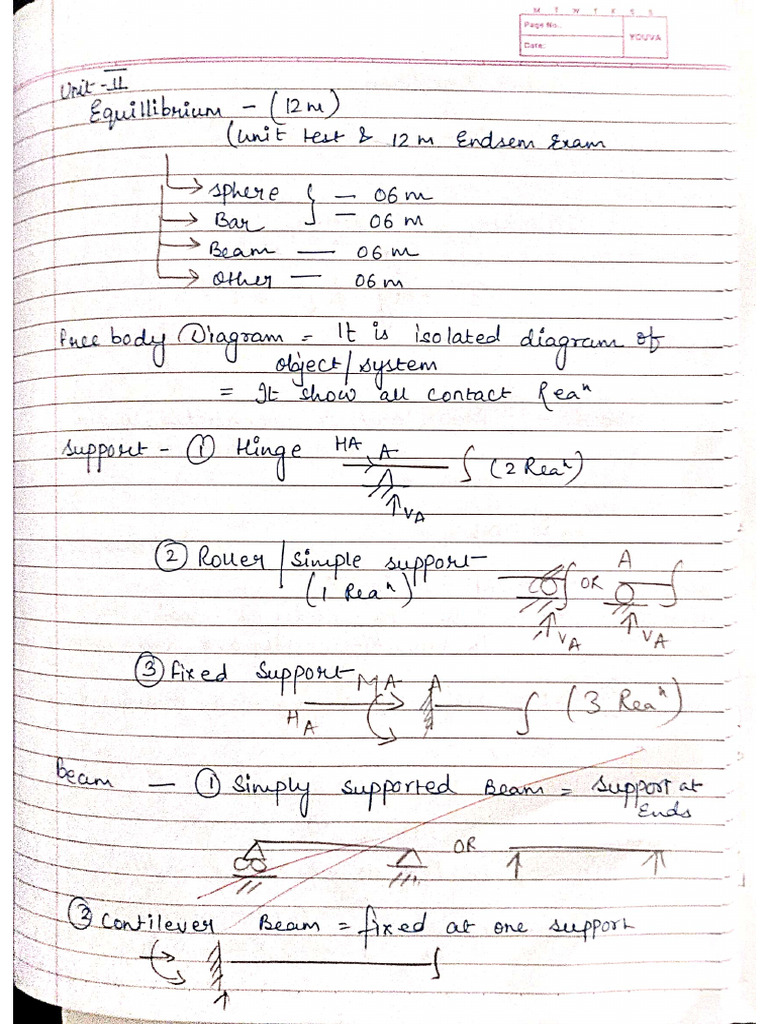 M T W T F S S
Page No.:
Date:
YOUVA
Unit - II
Equillibrium - (12 m)
(Unit test & 12 m Endsem Exam
→ Sphere } - 06 m
→ Bar - 06 m
→ Beam - 06 m
→ Other - 06 m
free body Diagram = It is isolated diagram of
object/system
= It show all contact Reaⁿ
Support - ① Hinge HA A (2 Reaⁿ)
VA
② Roller / Simple support
(1 Reaⁿ)
OR A
VA VA
③ Fixed Support
MA A (3 Reaⁿ)
HA
Beam - ① Simply supported Beam = Support at
Ends
OR
③ Contilever Beam = fixed at one support